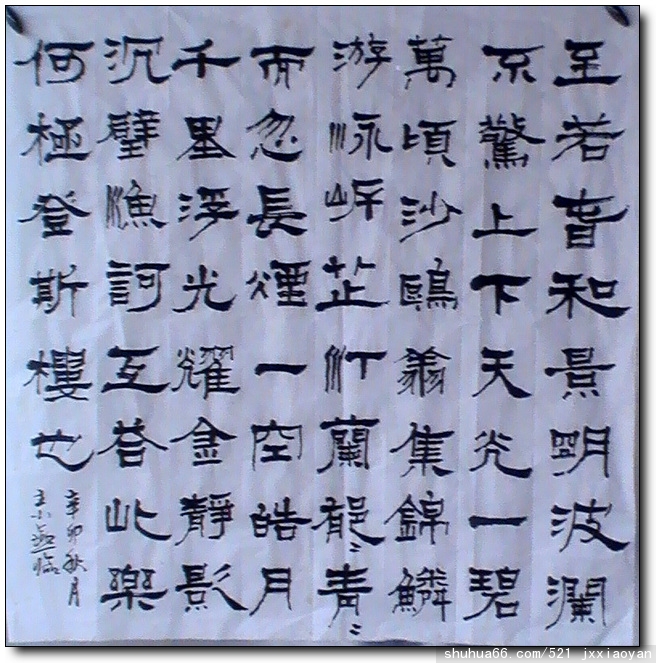 至若春和景明波瀾
不驚上下天光一碧
萬頃沙鷗翔集錦鱗
游泳岸芷汀蘭郁〻青〻
而忽長煙一空皓月
千里浮光耀金靜影
沉璧漁訶互荅此樂
何極登斯樓也
辛卯秋月
臨
shuhua66.com/521_jxxiaoyan